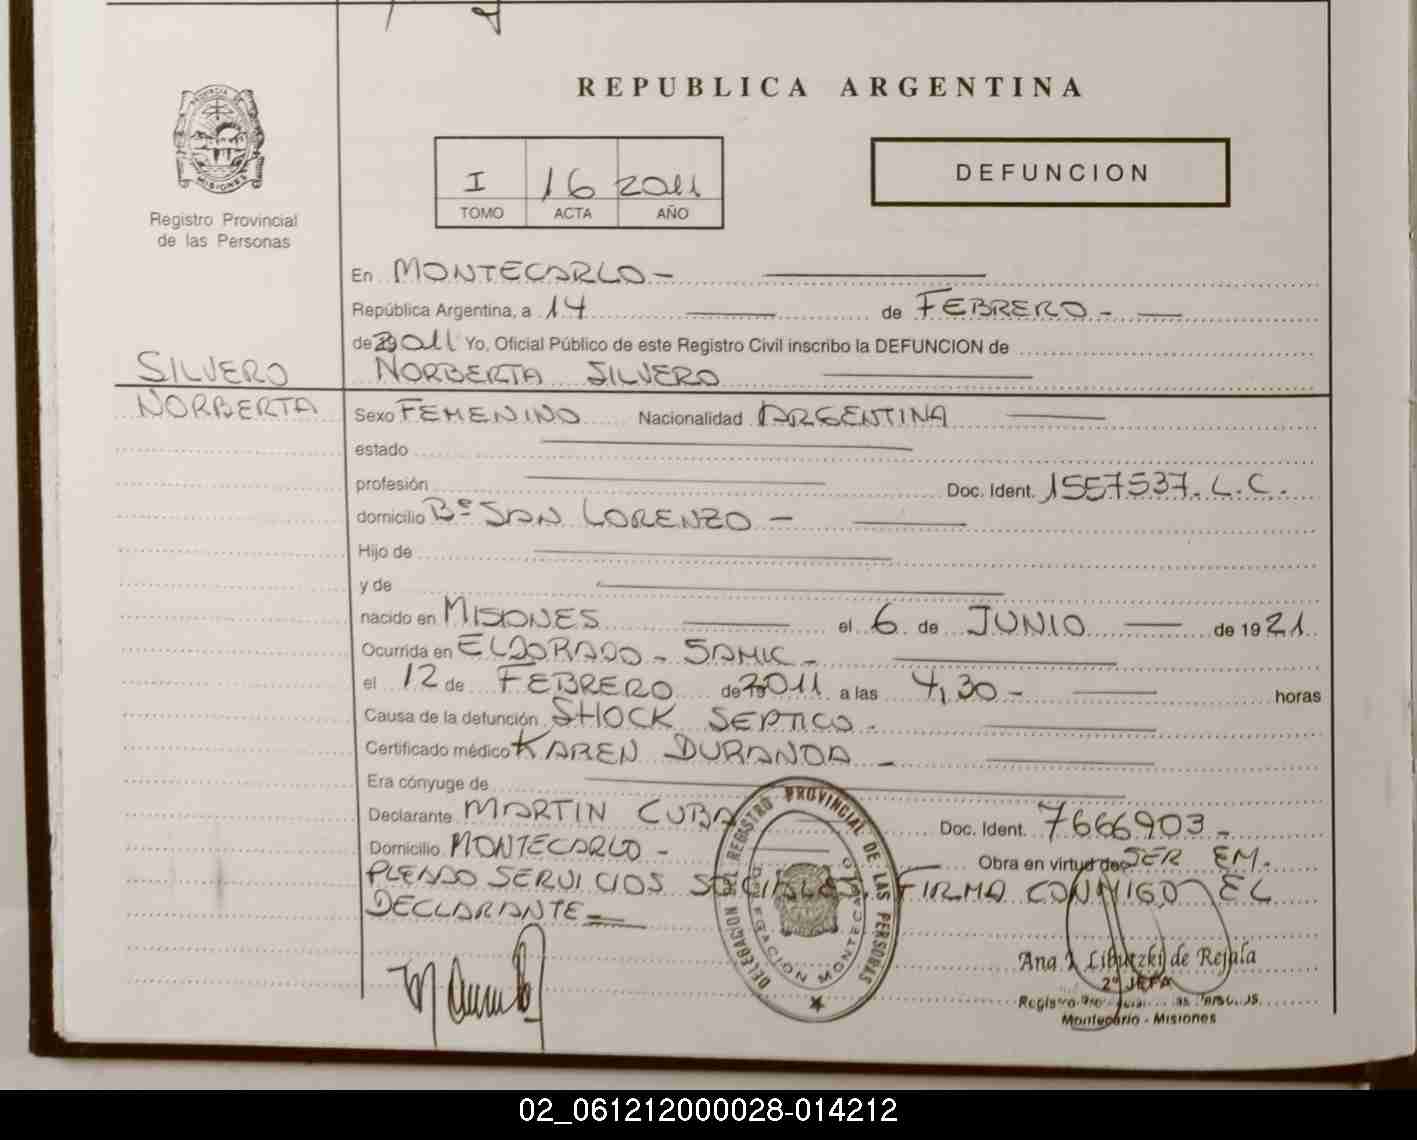 REPUBLICA ARGENTINA
PROVINCIA DE
MISIONES
Registro Provincial
de las Personas
I 16 2011
TOMO ACTA AÑO
DEFUNCION
En MONTECARLO -
República Argentina, a 14 de FEBRERO -
de 2011 Yo, Oficial Público de este Registro Civil inscribo la DEFUNCION de
SILVERO NORBERTA SILVERO
NORBERTA Sexo FEMENINO Nacionalidad ARGENTINA
estado
profesión Doc. Ident. 1557537. L.C.
domicilio Bº SAN LORENZO -
Hijo de
y de
nacido en MISIONES el 6 de JUNIO de 1921
Ocurrida en ELDORADO - SAMIC -
el 12 de FEBRERO de 2011 a las 4,30 - horas
Causa de la defunción SHOCK SEPTICO -
Certificado médico KAREN DURANDA -
Era cónyuge de
Declarante MARTIN CUBA Doc. Ident. 7666903 -
Domicilio MONTECARLO - Obra en virtud de SER EM.
PLEADO SERVICIOS SOCIALES. FIRMA CONMIGO EL
DECLARANTE
DELEGACION DEL REGISTRO PROVINCIAL DE LAS PERSONAS
DELEGACION MONTECARLO
Ana Libutzki de Rejala
2º JEFA
Montecarlo - Misiones
02_061212000028-014212